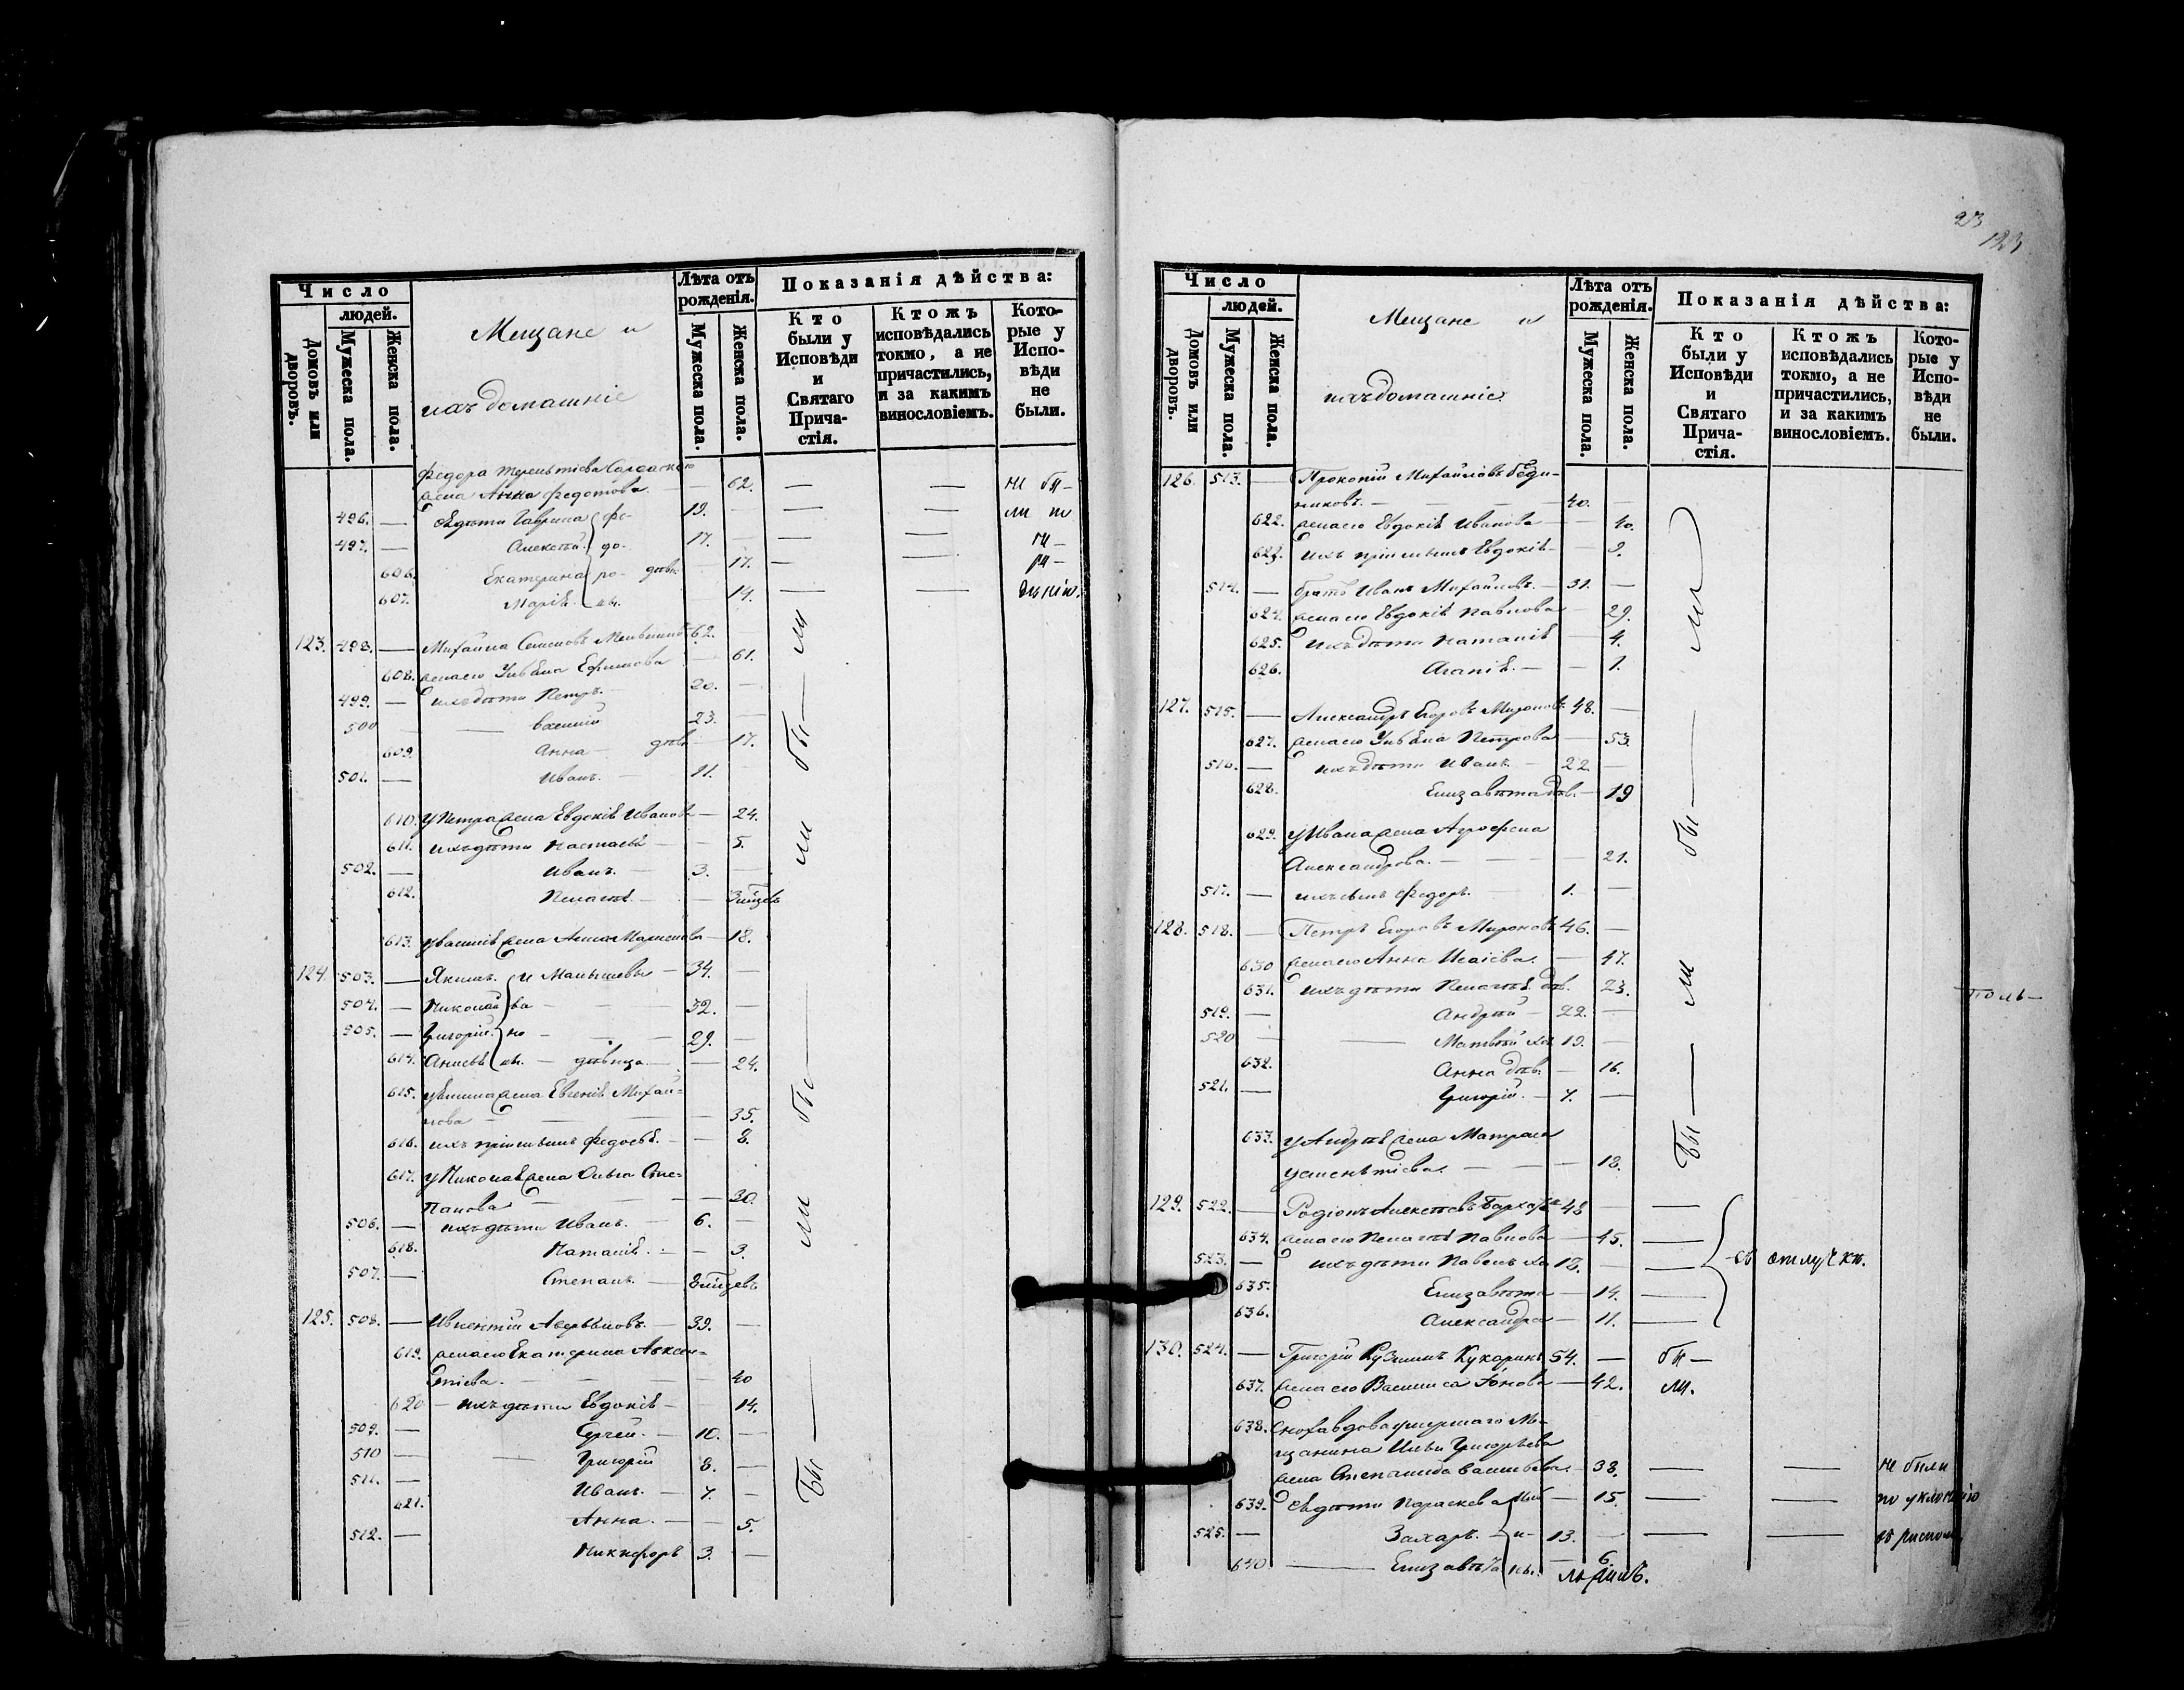 Число
людей.
Домовъ или дворовъ.
Мужеска пола.
Женска пола.
Мещане и
ихъ домашніе
Лѣта отъ рожденія.
Мужеска пола.
Женска пола.
Показанія дѣйства:
Кто были у Исповѣди и Святаго Прича-стія.
Ктожъ исповѣдались токмо, а не причастились, и за какимъ винословіемъ.
Кото-рые у Испо-вѣди не были.
Федора Терентіева
жена Анна Федотова — 62. — — не бы-
496. — Ея дѣти Гаврила Фе- 19. — — — ли по
497. — Алексѣй до- 17. — — —
606. Екатерина ро- дѣв. — 17. — —
607. Марія вы. 14. — —
123. 498. — Михайла Семеновъ 62.
608. жена его Ульяна Ефимова — 61.
499. — ихъ дѣти Петръ. 20. —
500 — Василій 23. —
609. Анна — дѣв. — 17.
501. — Иванъ. — 11. —
610. у Петра жена Евдокія Иванова — 24.
611. ихъ дѣти Настасья — — 5.
502. — Иванъ. — 3. —
612. Пелагія. — —
613. у Василія жена Анна — 18.
124 503. — Якимъ. И Малышевы — 34. —
504. — Николай ва — 32. —
505. — Григорій. но — 29. —
614. Анисья вы. — дѣвица. — — 24.
615. у Якима жена Евгенія Михай-
лова — — — 35.
616. ихъ дочь Федосья. — — 8.
617. у Николая жена Ольга Сте-
панова — — 30.
506. — ихъ дѣти Иванъ. — 6. —
618. Наталія. — — 3.
507. — Степанъ. —
125. 508. — Аверьяновъ. — 39. —
619. жена его Екатерина Авксен-
тіева. — — — 40
620 — ихъ дѣти Евдокія — 14.
509. — Сергей. — 10. —
510 — — Григорій 8. —
511. — Иванъ. — 7. —
621. Анна. — — 5.
512. — Никифоръ 3. —
Бы — ли бы — ли бы — ли
23
123
Число
людей.
Домовъ или дворовъ.
Мужеска пола.
Женска пола.
Мещане и
ихъ домашніе
Лѣта отъ рожденія.
Мужеска пола.
Женска пола.
Показанія дѣйства:
Кто были у Исповѣди и Святаго Прича-стія.
Ктожъ исповѣдались токмо, а не причастились, и за какимъ винословіемъ.
Кото-рые у Испо-вѣди не были.
126. 513. — Прокопій Михайловъ
— 40. —
622. жена его Евдокія Иванова — — 40.
623. Евдокія — 9.
514. — братъ Иванъ Михайловъ — 31. —
624. жена его Евдокія Павлова — 29.
625. ихъ дѣти Наталія — 4.
626. Агапія. — — 1.
127. 515. — Александръ Егоровъ Мироновъ 48. —
627. жена его Ульяна Петрова — 53.
516. — ихъ дѣти Иванъ — 22. —
628. Елизавета дѣв. — 19
629. у Ивана жена Агрофена
Александрова. — — — 21.
517. — ихъ сынъ Федоръ. — 1. —
128. 518. — Петръ Егоровъ Мироновъ 46. —
630 жена его Анна Исаіева. — 47.
631. ихъ дѣти Пелагія дѣв. 23.
519. — Андрей — 22. —
520 — — Матвѣй хол. 19. —
632. Анна дѣв. — 16.
521. — Григорій. — 7. —
633. у Андрея жена Матрена
— — — 18.
129. 522. — Родіонъ Алексѣевъ 48 — —
634. жена его Пелагія Павлова — 45. —
523. — ихъ дѣти Павелъ хол. 18. — —
635. Елизавета — 14. —
636. Александра — 11. —
въ отлучкѣ.
130. 524. — Григорій Кузминъ Кукаринъ 54. — бы —
637. жена его Василиса — 42. ли.
638. Сноха вдова умершаго Мѣ-
щанина Ильи Григорьева
жена Степанида Васильева — 38. — — не были
639. Ея дѣти Параскева Иль — 15. — — по уклоненію
525. — Захаръ. и- 13. — — — въ расколъ
640 — Елизавѣта 6
Бы — ли бы — ли